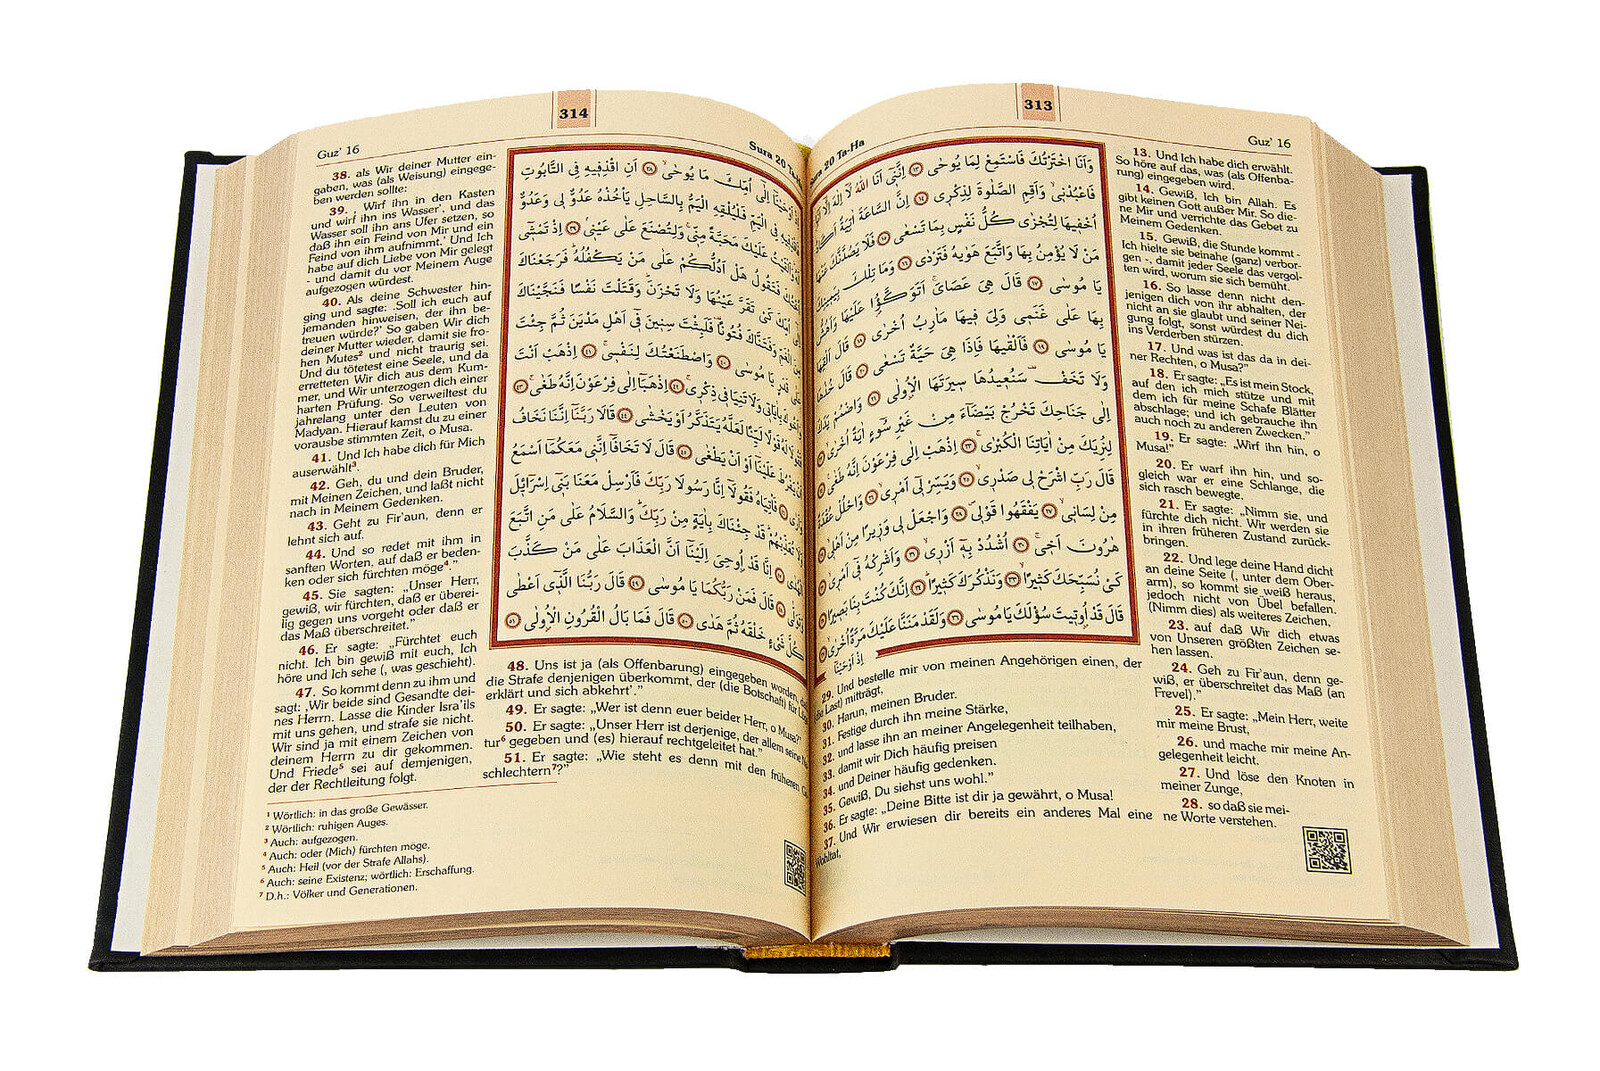 313
Sura 20 Ta-Ha
Guz' 16
وَاَنَا اخْتَرْتُكَ فَاسْتَمِعْ لِمَا يُوحٰى ﴿١٣﴾ اِنَّنٖى اَنَا اللّٰهُ لَا اِلٰهَ اِلَّا
فَاعْبُدْنٖى وَاَقِمِ الصَّلٰوةَ لِذِكْرٖى ﴿١٤﴾ اِنَّ السَّاعَةَ اٰتِيَةٌ اَكَادُ
اُخْفٖيهَا لِتُجْزٰى كُلُّ نَفْسٍ بِمَا تَسْعٰى ﴿١٥﴾ فَلَا يَصُدَّنَّكَ عَنْهَا
مَنْ لَا يُؤْمِنُ بِهَا وَاتَّبَعَ هَوٰيهُ فَتَرْدٰى ﴿١٦﴾ وَمَا تِلْكَ بِيَمٖينِكَ
يَا مُوسٰى ﴿١٧﴾ قَالَ هِىَ عَصَاىَ اَتَوَكَّؤُا عَلَيْهَا وَاَهُشُّ
بِهَا عَلٰى غَنَمٖى وَلِىَ فٖيهَا مَاٰرِبُ اُخْرٰى ﴿١٨﴾ قَالَ اَلْقِهَا
يَا مُوسٰى ﴿١٩﴾ فَاَلْقٰيهَا فَاِذَا هِىَ حَيَّةٌ تَسْعٰى ﴿٢٠﴾ قَالَ خُذْهَا
وَلَا تَخَفْ سَنُعٖيدُهَا سٖيرَتَهَا الْاُولٰى ﴿٢١﴾ وَاضْمُمْ يَدَكَ
اِلٰى جَنَاحِكَ تَخْرُجْ بَيْضَاءَ مِنْ غَيْرِ سُوءٍ اٰيَةً اُخْرٰى ﴿٢٢﴾
لِنُرِيَكَ مِنْ اٰيَاتِنَا الْكُبْرٰى ﴿٢٣﴾ اِذْهَبْ اِلٰى فِرْعَوْنَ اِنَّهُ طَغٰى ﴿٢٤﴾
قَالَ رَبِّ اشْرَحْ لٖى صَدْرٖى ﴿٢٥﴾ وَيَسِّرْ لٖى اَمْرٖى ﴿٢٦﴾ وَاحْلُلْ عُقْدَةً
مِنْ لِسَانٖى ﴿٢٧﴾ يَفْقَهُوا قَوْلٖى ﴿٢٨﴾ وَاجْعَلْ لٖى وَزٖيرًا مِنْ اَهْلٖى ﴿٢٩﴾
هٰرُونَ اَخٖى ﴿٣٠﴾ اُشْدُدْ بِهٖ اَزْرٖى ﴿٣١﴾ وَاَشْرِكْهُ فٖى اَمْرٖى ﴿٣٢﴾
كَىْ نُسَبِّحَكَ كَثٖيرًا ﴿٣٣﴾ وَنَذْكُرَكَ كَثٖيرًا ﴿٣٤﴾ اِنَّكَ كُنْتَ بِنَا بَصٖيرًا ﴿٣٥﴾
قَالَ قَدْ اُوتٖيتَ سُؤْلَكَ يَا مُوسٰى ﴿٣٦﴾ وَلَقَدْ مَنَنَّا عَلَيْكَ مَرَّةً اُخْرٰى ﴿٣٧﴾
اِذْ اَوْحَيْنَا
13. Und Ich habe dich erwählt.
So höre auf das, was (als Offenba-
rung) eingegeben wird.
14. Gewiß, Ich bin Allah. Es
gibt keinen Gott außer Mir. So die-
ne Mir und verrichte das Gebet zu
Meinem Gedenken.
15. Gewiß, die Stunde kommt -
Ich hielte sie beinahe (ganz) verbor-
gen -, damit jeder Seele das vergol-
ten wird, worum sie sich bemüht.
16. So lasse denn nicht den-
jenigen dich von ihr abhalten, der
nicht an sie glaubt und seiner Nei-
gung folgt, sonst würdest du dich
ins Verderben stürzen.
17. Und was ist das da in dei-
ner Rechten, o Musa?"
18. Er sagte: „Es ist mein Stock,
auf den ich mich stütze und mit
dem ich für meine Schafe Blätter
abschlage; und ich gebrauche ihn
auch noch zu anderen Zwecken."
19. Er sagte: „Wirf ihn hin, o
Musa!"
20. Er warf ihn hin, und so-
gleich war er eine Schlange, die
sich rasch bewegte.
21. Er sagte: „Nimm sie, und
fürchte dich nicht. Wir werden sie
in ihren früheren Zustand zurück-
bringen.
22. Und lege deine Hand dicht
an deine Seite (, unter dem Ober-
arm), so kommt sie weiß heraus,
jedoch nicht von Übel befallen.
(Nimm dies) als weiteres Zeichen,
23. auf daß Wir dich etwas
von Unseren größten Zeichen se-
hen lassen.
24. Geh zu Fir'aun, denn ge-
wiß, er überschreitet das Maß (an
Frevel)."
25. Er sagte: „Mein Herr, weite
mir meine Brust,
26. und mache mir meine An-
gelegenheit leicht.
27. Und löse den Knoten in
meiner Zunge,
28. so daß sie mei-
ne Worte verstehen.
29. Und bestelle mir von meinen Angehörigen einen, der
(die Last) mitträgt,
30. Harun, meinen Bruder.
31. Festige durch ihn meine Stärke,
32. und lasse ihn an meiner Angelegenheit teilhaben,
33. damit wir Dich häufig preisen
34. und Deiner häufig gedenken.
35. Gewiß, Du siehst uns wohl."
36. Er sagte: „Deine Bitte ist dir ja gewährt, o Musa!
37. Und Wir erwiesen dir bereits ein anderes Mal eine
Wohltat,
314
Guz' 16
Sura 20
38. als Wir deiner Mutter ein-
gaben, was (als Weisung) eingege-
ben werden sollte:
39. ‚Wirf ihn in den Kasten
und wirf ihn ins Wasser¹, und das
Wasser soll ihn ans Ufer setzen, so
daß ihn ein Feind von Mir und ein
Feind von ihm aufnimmt.' Und Ich
habe auf dich Liebe von Mir gelegt
- und damit du vor Meinem Auge
aufgezogen würdest.
40. Als deine Schwester hin-
ging und sagte: ‚Soll ich euch auf
jemanden hinweisen, der ihn be-
treuen würde?' So gaben Wir dich
deiner Mutter wieder, damit sie fro-
hen Mutes² und nicht traurig sei.
Und du tötetest eine Seele, und da
erretteten Wir dich aus dem Kum-
mer, und Wir unterzogen dich einer
harten Prüfung. So verweiltest du
jahrelang unter den Leuten von
Madyan. Hierauf kamst du zu einer
vorausbe stimmten Zeit, o Musa.
41. Und Ich habe dich für Mich
auserwählt³.
42. Geh, du und dein Bruder,
mit Meinen Zeichen, und laßt nicht
nach in Meinem Gedenken.
43. Geht zu Fir'aun, denn er
lehnt sich auf.
44. Und so redet mit ihm in
sanften Worten, auf daß er beden-
ken oder sich fürchten möge⁴."
45. Sie sagten: „Unser Herr,
gewiß, wir fürchten, daß er überei-
lig gegen uns vorgeht oder daß er
das Maß überschreitet."
46. Er sagte: „Fürchtet euch
nicht. Ich bin gewiß mit euch, Ich
höre und Ich sehe (, was geschieht).
47. So kommt denn zu ihm und
sagt: ‚Wir beide sind Gesandte dei-
nes Herrn. Lasse die Kinder Isra'ils
mit uns gehen, und strafe sie nicht.
Wir sind ja mit einem Zeichen von
deinem Herrn zu dir gekommen.
Und Friede⁵ sei auf demjenigen,
der der Rechtleitung folgt.
اِلٰى اُمِّكَ مَا يُوحٰى ﴿٣٨﴾ اَنِ اقْذِفٖيهِ فِى التَّابُوتِ
فِى الْيَمِّ فَلْيُلْقِهِ الْيَمُّ بِالسَّاحِلِ يَاْخُذْهُ عَدُوٌّ لٖى وَعَدُوٌّ
عَلَيْكَ مَحَبَّةً مِنّٖى وَلِتُصْنَعَ عَلٰى عَيْنٖى ﴿٣٩﴾ اِذْ تَمْشٖى
فَتَقُولُ هَلْ اَدُلُّكُمْ عَلٰى مَنْ يَكْفُلُهُ فَرَجَعْنَاكَ
كَىْ تَقَرَّ عَيْنُهَا وَلَا تَحْزَنَ وَقَتَلْتَ نَفْسًا فَنَجَّيْنَاكَ
وَفَتَنَّاكَ فُتُونًا فَلَبِثْتَ سِنٖينَ فٖى اَهْلِ مَدْيَنَ ثُمَّ جِئْتَ
قَدَرٍ يَا مُوسٰى ﴿٤٠﴾ وَاصْطَنَعْتُكَ لِنَفْسٖى ﴿٤١﴾ اِذْهَبْ اَنْتَ
بِاٰيَاتٖى وَلَا تَنِيَا فٖى ذِكْرٖى ﴿٤٢﴾ اِذْهَبَا اِلٰى فِرْعَوْنَ اِنَّهُ طَغٰى ﴿٤٣﴾
لَهُ قَوْلًا لَيِّنًا لَعَلَّهُ يَتَذَكَّرُ اَوْ يَخْشٰى ﴿٤٤﴾ قَالَا رَبَّنَا اِنَّنَا نَخَافُ
يَفْرُطَ عَلَيْنَا اَوْ اَنْ يَطْغٰى ﴿٤٥﴾ قَالَ لَا تَخَافَا اِنَّنٖى مَعَكُمَا اَسْمَعُ
فَاْتِيَاهُ فَقُولَا اِنَّا رَسُولَا رَبِّكَ فَاَرْسِلْ مَعَنَا بَنٖى اِسْرَائٖلَ
تُعَذِّبْهُمْ قَدْ جِئْنَاكَ بِاٰيَةٍ مِنْ رَبِّكَ وَالسَّلَامُ عَلٰى مَنِ اتَّبَعَ
اِنَّا قَدْ اُوحِىَ اِلَيْنَا اَنَّ الْعَذَابَ عَلٰى مَنْ كَذَّبَ
قَالَ فَمَنْ رَبُّكُمَا يَا مُوسٰى ﴿٤٩﴾ قَالَ رَبُّنَا الَّذٖى اَعْطٰى
كُلَّ شَىْءٍ خَلْقَهُ ثُمَّ هَدٰى ﴿٥٠﴾ قَالَ فَمَا بَالُ الْقُرُونِ الْاُولٰى ﴿٥١﴾
48. Uns ist ja (als Offenbarung) eingegeben worden, daß
die Strafe denjenigen überkommt, der (die Botschaft) für
erklärt und sich abkehrt'."
49. Er sagte: „Wer ist denn euer beider Herr, o Musa?"
50. Er sagte: „Unser Herr ist derjenige, der allem seine
tur⁶ gegeben und (es) hierauf rechtgeleitet hat."
51. Er sagte: „Wie steht es denn mit den früheren
schlechtern⁷?"
¹ Wörtlich: in das große Gewässer.
² Wörtlich: ruhigen Auges.
³ Auch: aufgezogen.
⁴ Auch: oder (Mich) fürchten möge.
⁵ Auch: Heil (vor der Strafe Allahs).
⁶ Auch: seine Existenz; wörtlich: Erschaffung.
⁷ D.h.: Völker und Generationen.